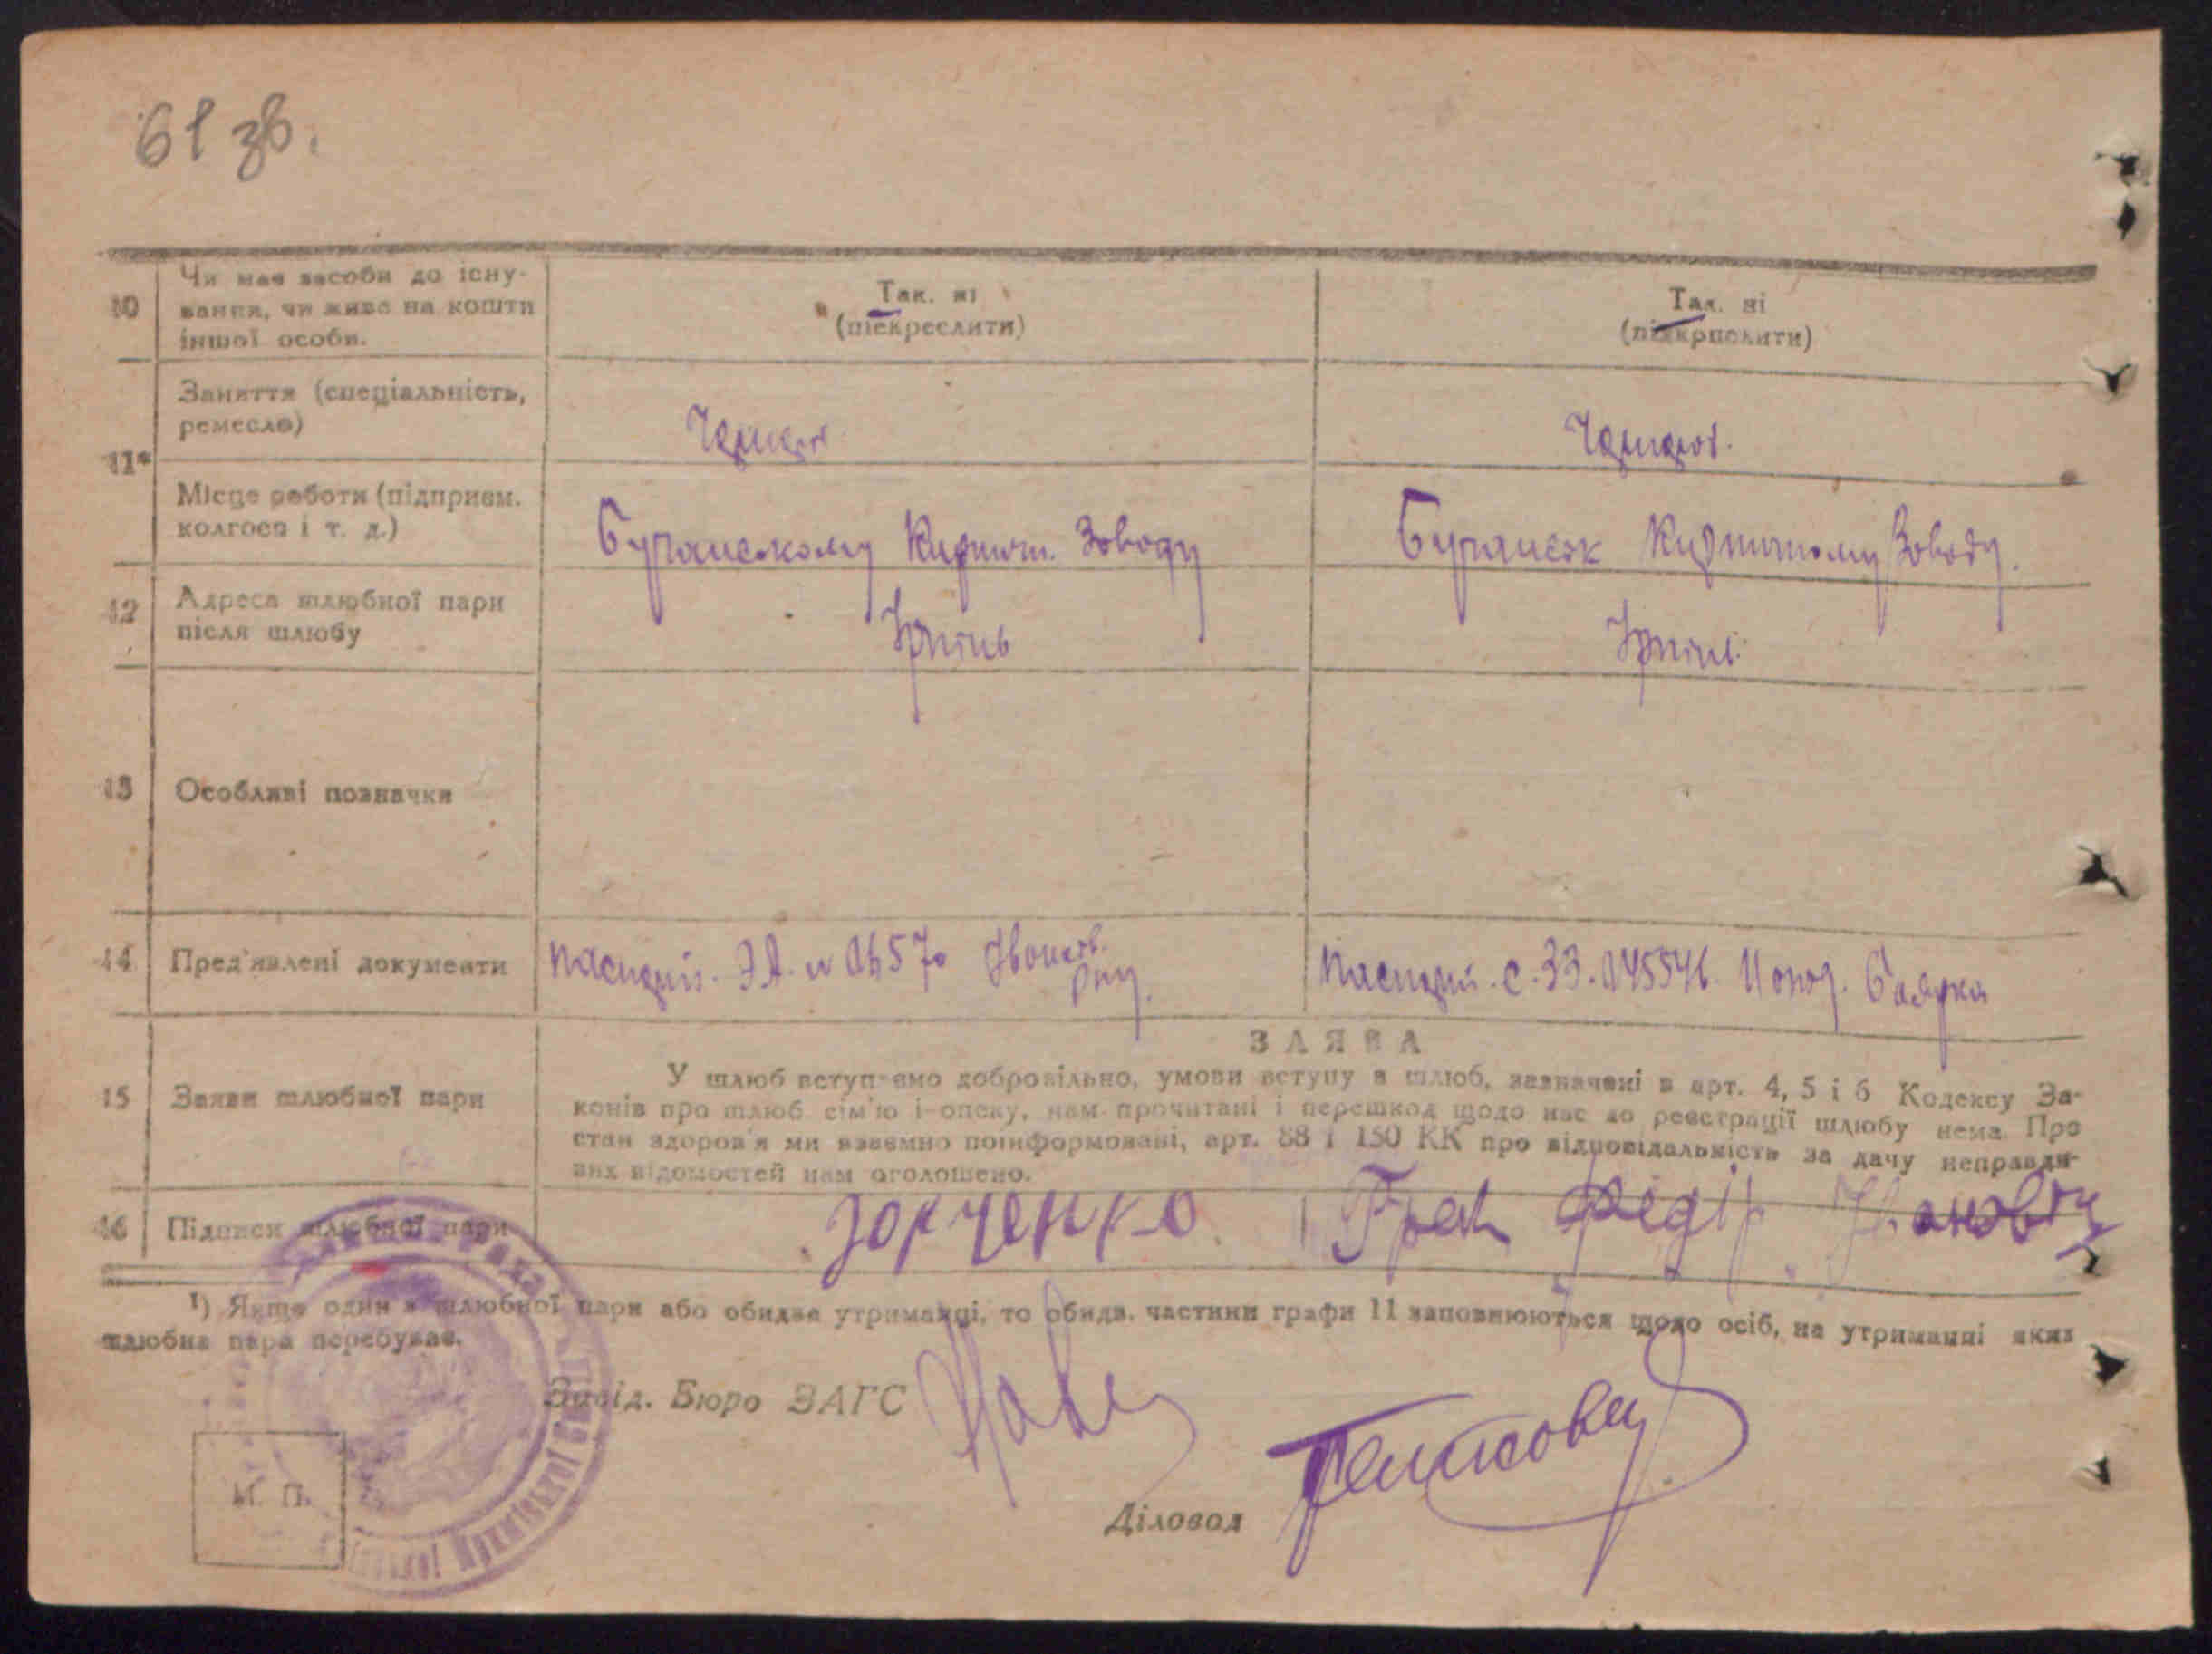 61 зв.
10
Чи має засоби до існу-
вання, чи живе на кошти
іншої особи.
Так. ні
(підкреслити)
Так. ні
(підкреслити)
11*
Заняття (спеціальність,
ремесло)
Місце роботи (підприєм.
колгосп і т. д.)
Бучанскому Кирпичн. Зоводу
Бучанск Кирпичному Зоводу.
12
Адреса шлюбної пари
після шлюбу
Ірпінь
Ірпінь
13
Особливі позначки
14
Пред'явлені документи
15
Заява шлюбної пари
ЗАЯВА
У шлюб вступаємо добровільно, умови вступу в шлюб, зазначені в арт. 4, 5 і 6 Кодексу За-
конів про шлюб сім'ю і опеку, нам прочитані і перешкод щодо нас до реєстрації шлюбу нема. Про
стан здоров'я ми взаємно поінформовані, арт. 88 і 130 КК про відповідальність за дачу неправди-
вих відомостей нам оголошено.
16
Підписи шлюбної пари
Зорченко
Грек Федір Іванович
1) Якщо один з шлюбної пари або обидва утриманці, то обидв. частини графи 11 заповнюються щодо осіб, на утриманні яких
шлюбна пара перебуває.
Завід. Бюро ЗАГС
М. П.
Діловод